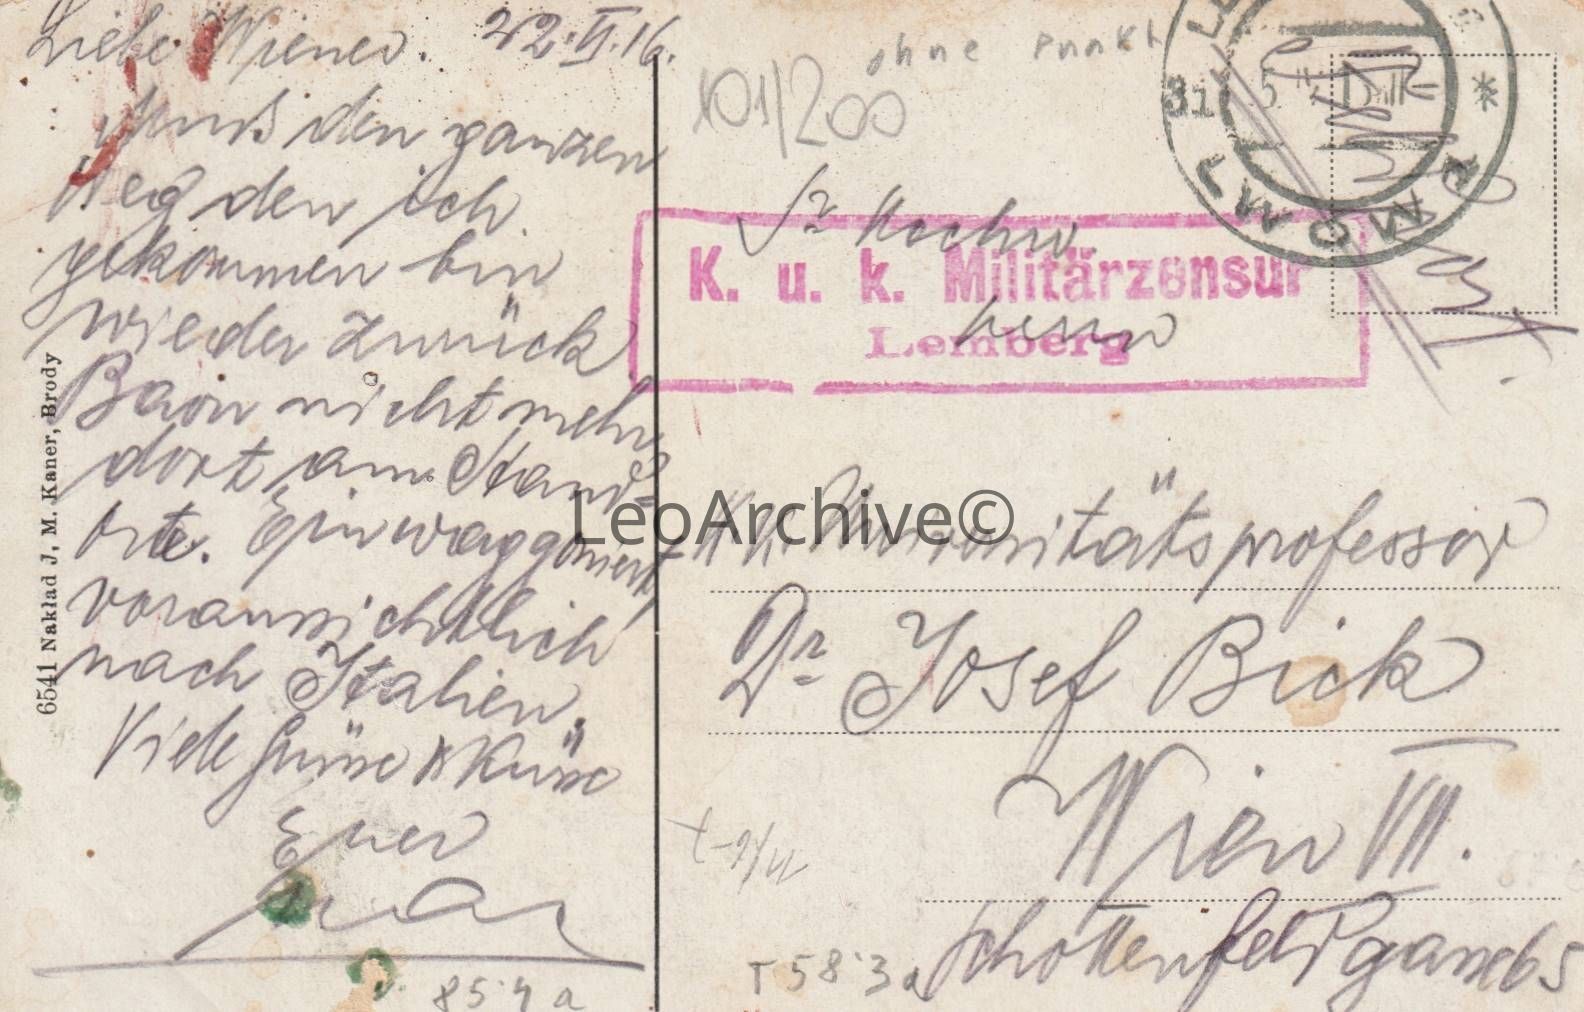 Liebe Wiener. 22.VI.16.
Muß den ganzen
Weg den ich
gekommen bin
wieder zurück
Baon nicht mehr
dort am Stand-
orte. Einwaggoniert,
voraussichtlich
nach Italien.
Viele Grüsse & Küsse
Euer
6541 Nakład J. M. Kaner, Brody
101/200
ohne Punkt
31 5
K. u. k. Militärzensur
Lemberg
Sr Hochw
K. K. Universitätsprofessor
Dr Josef Bick
Wien VII.
Schottenfeldgasse 65
T 58'3 a
85'4 a
LeoArchive©